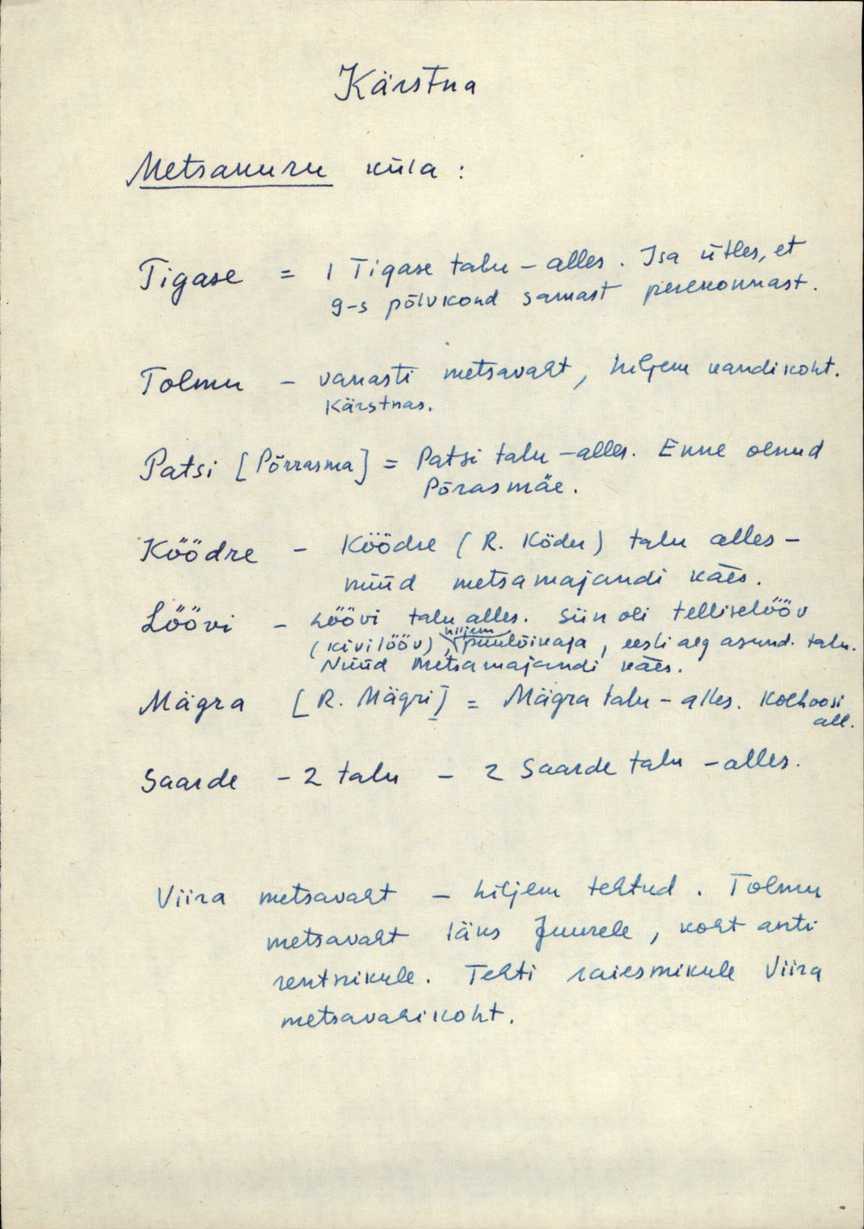 Kärstna
Metsakuru küla:
Tigase = 1 Tigase talu - alles. Isa ütles, et
9-s põlvkond samast perekonnast.
Tolmu - vanasti metsavaht, hiljem kandikoht.
Kärstnas.
Patsi [Põrrasma] = Patsi talu - alles. Enne olnud
Põrasmäe.
Köödre - Köödre (R. Ködu) talu alles -
nüüd metsamajandi käes.
Löövi - Löövi talu alles. Siin oli telliselööv
(kivilööv), hiljem puulõikaja, eesti aeg asund. talu.
Nüüd Metsamajandi käes.
Mägra [R. Mägri] = Mägra talu - alles. Kolhoosi
all.
Saarde - 2 talu - 2 Saarde talu - alles.
Viira metsavaht - hiljem tehtud. Tolmu
metsavaht läks Juurele, koht anti
rentnikule. Tehti raiesmikule Viira
metsavahikoht.